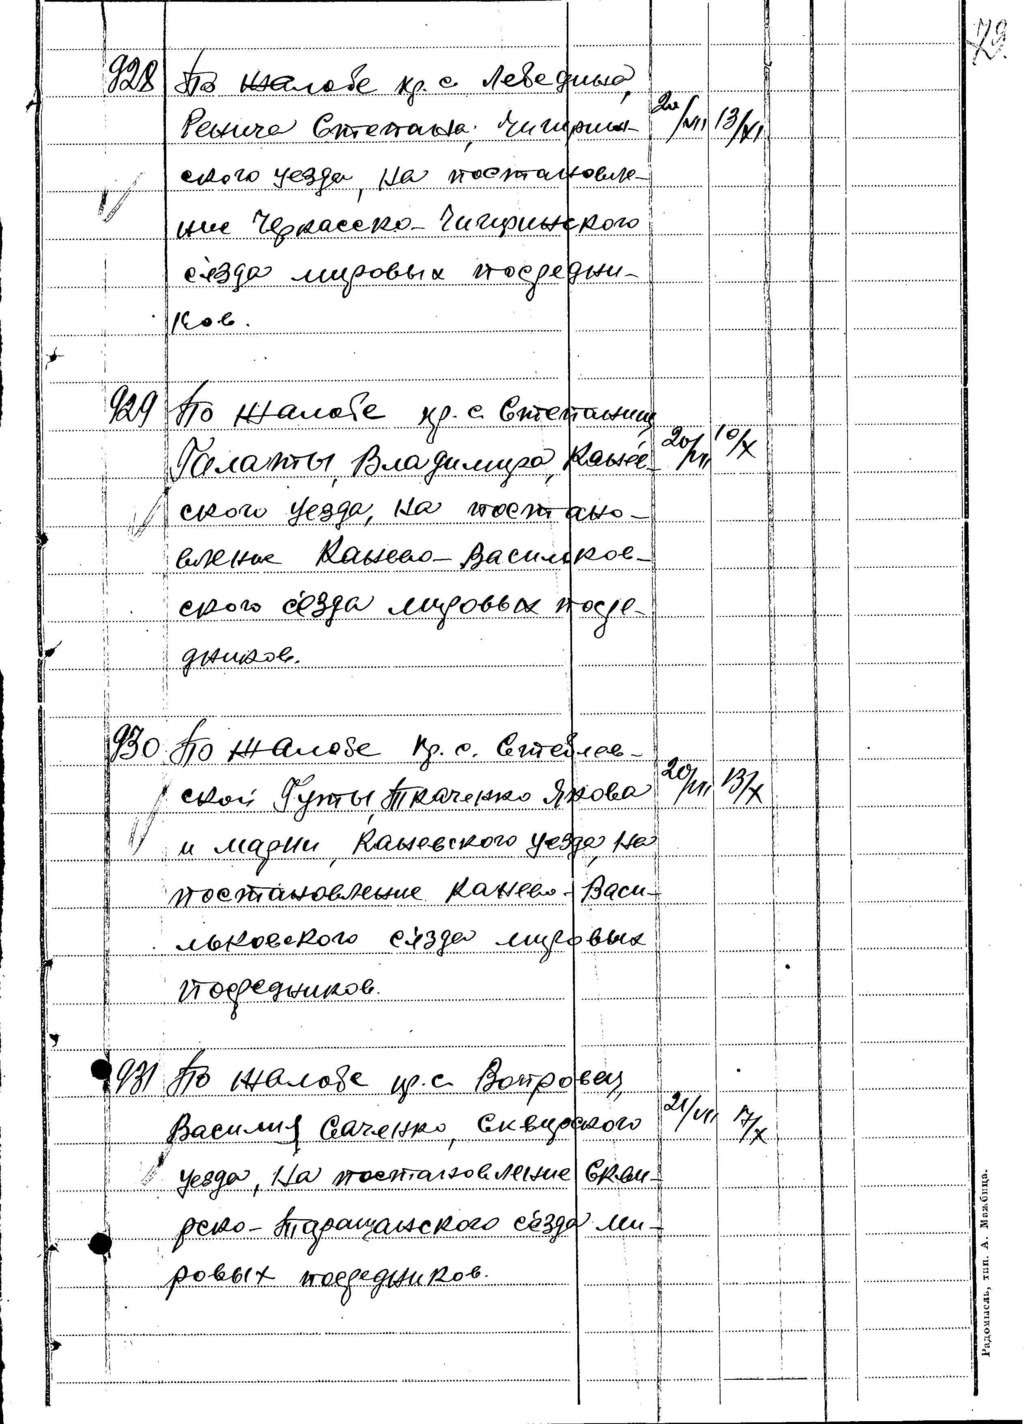 79.
928 По жалобе кр. с. Лебедина,
Ренича Степана, Чигирин- 20/VII 13/XI
ского уезда, на постановле-
ние Черкасско-Чигиринского
с'езда мировых посредни-
ков.
929 По жалобе кр. с. Степанец
Галанты, Владимира, Канев- 20/VII 10/X
ского уезда, на постано-
вление Канево-Васильков-
ского с'езда мировых посре-
дников.
930 По жалобе кр. с. Стеблев-
ской Гуты, Ткаченко Якова 20/VII 13/X
и Марии, Каневского уезда, на
постановление Канево-Васи-
льковского с'езда мировых
посредников.
931 По жалобе кр. с. Вотровец,
Василия Саченко, Сквирского 21/VII 17/X
уезда, на постановлениеСкви-
рско-Таращанского с'езда ми-
ровых посредников.
Радомысль, тип. А. Манбица.